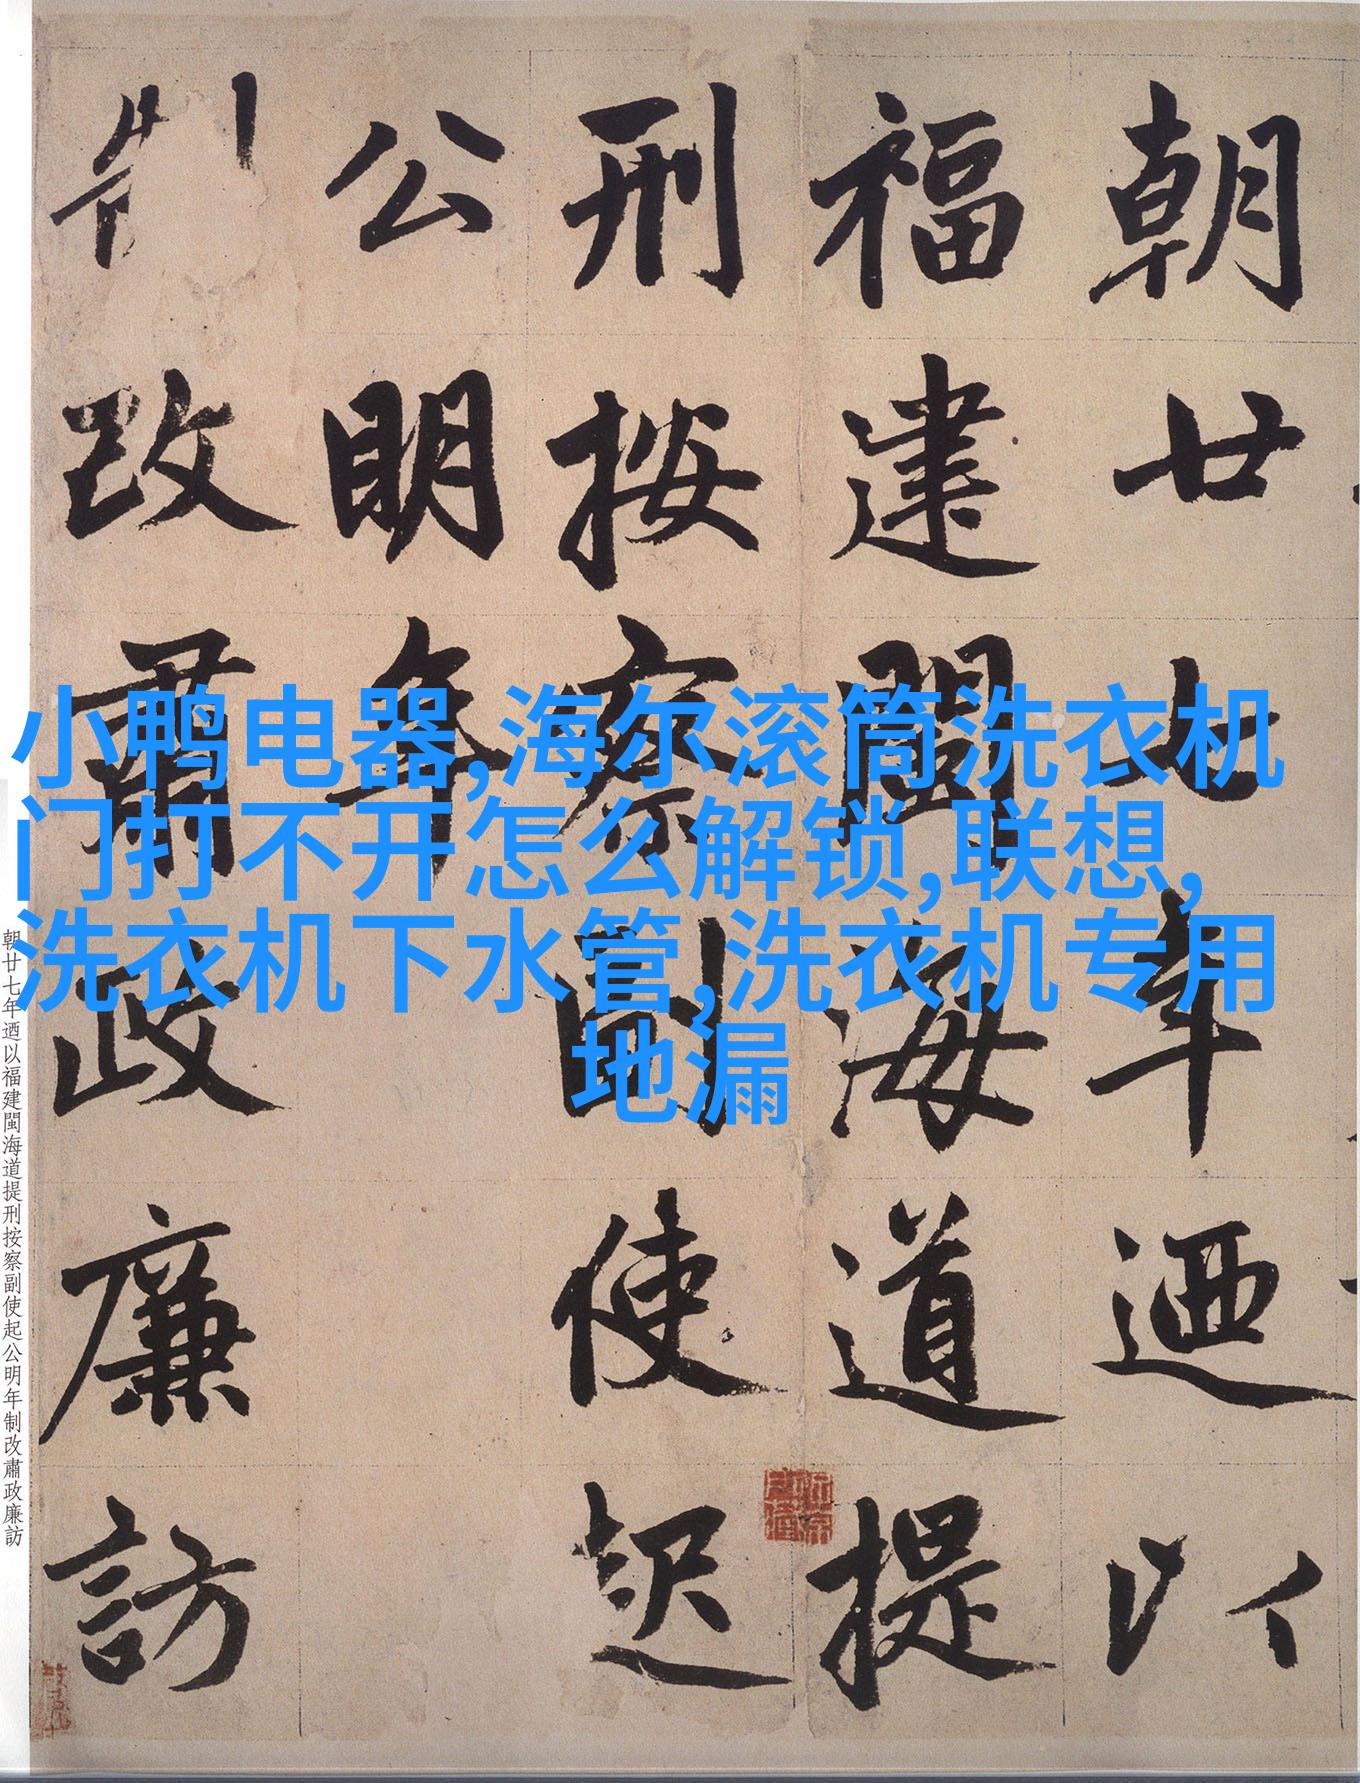 朝廿七年迺以
福建閩海道提
刑按察副使起
公明年
制改肅政廉訪
小鸭电器,海尔滚筒洗衣机
门打不开怎么解锁,联想,
洗衣机下水管,洗衣机专用
地漏
朝廿七年迺以福建閩海道提刑按察副使起公明年制改肅政廉訪